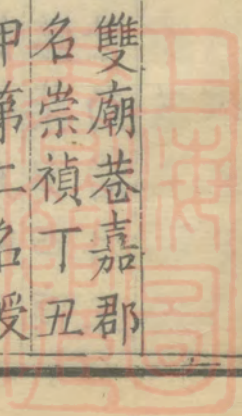 雙廟巷嘉郡
名崇禎丁丑
甲第二名授